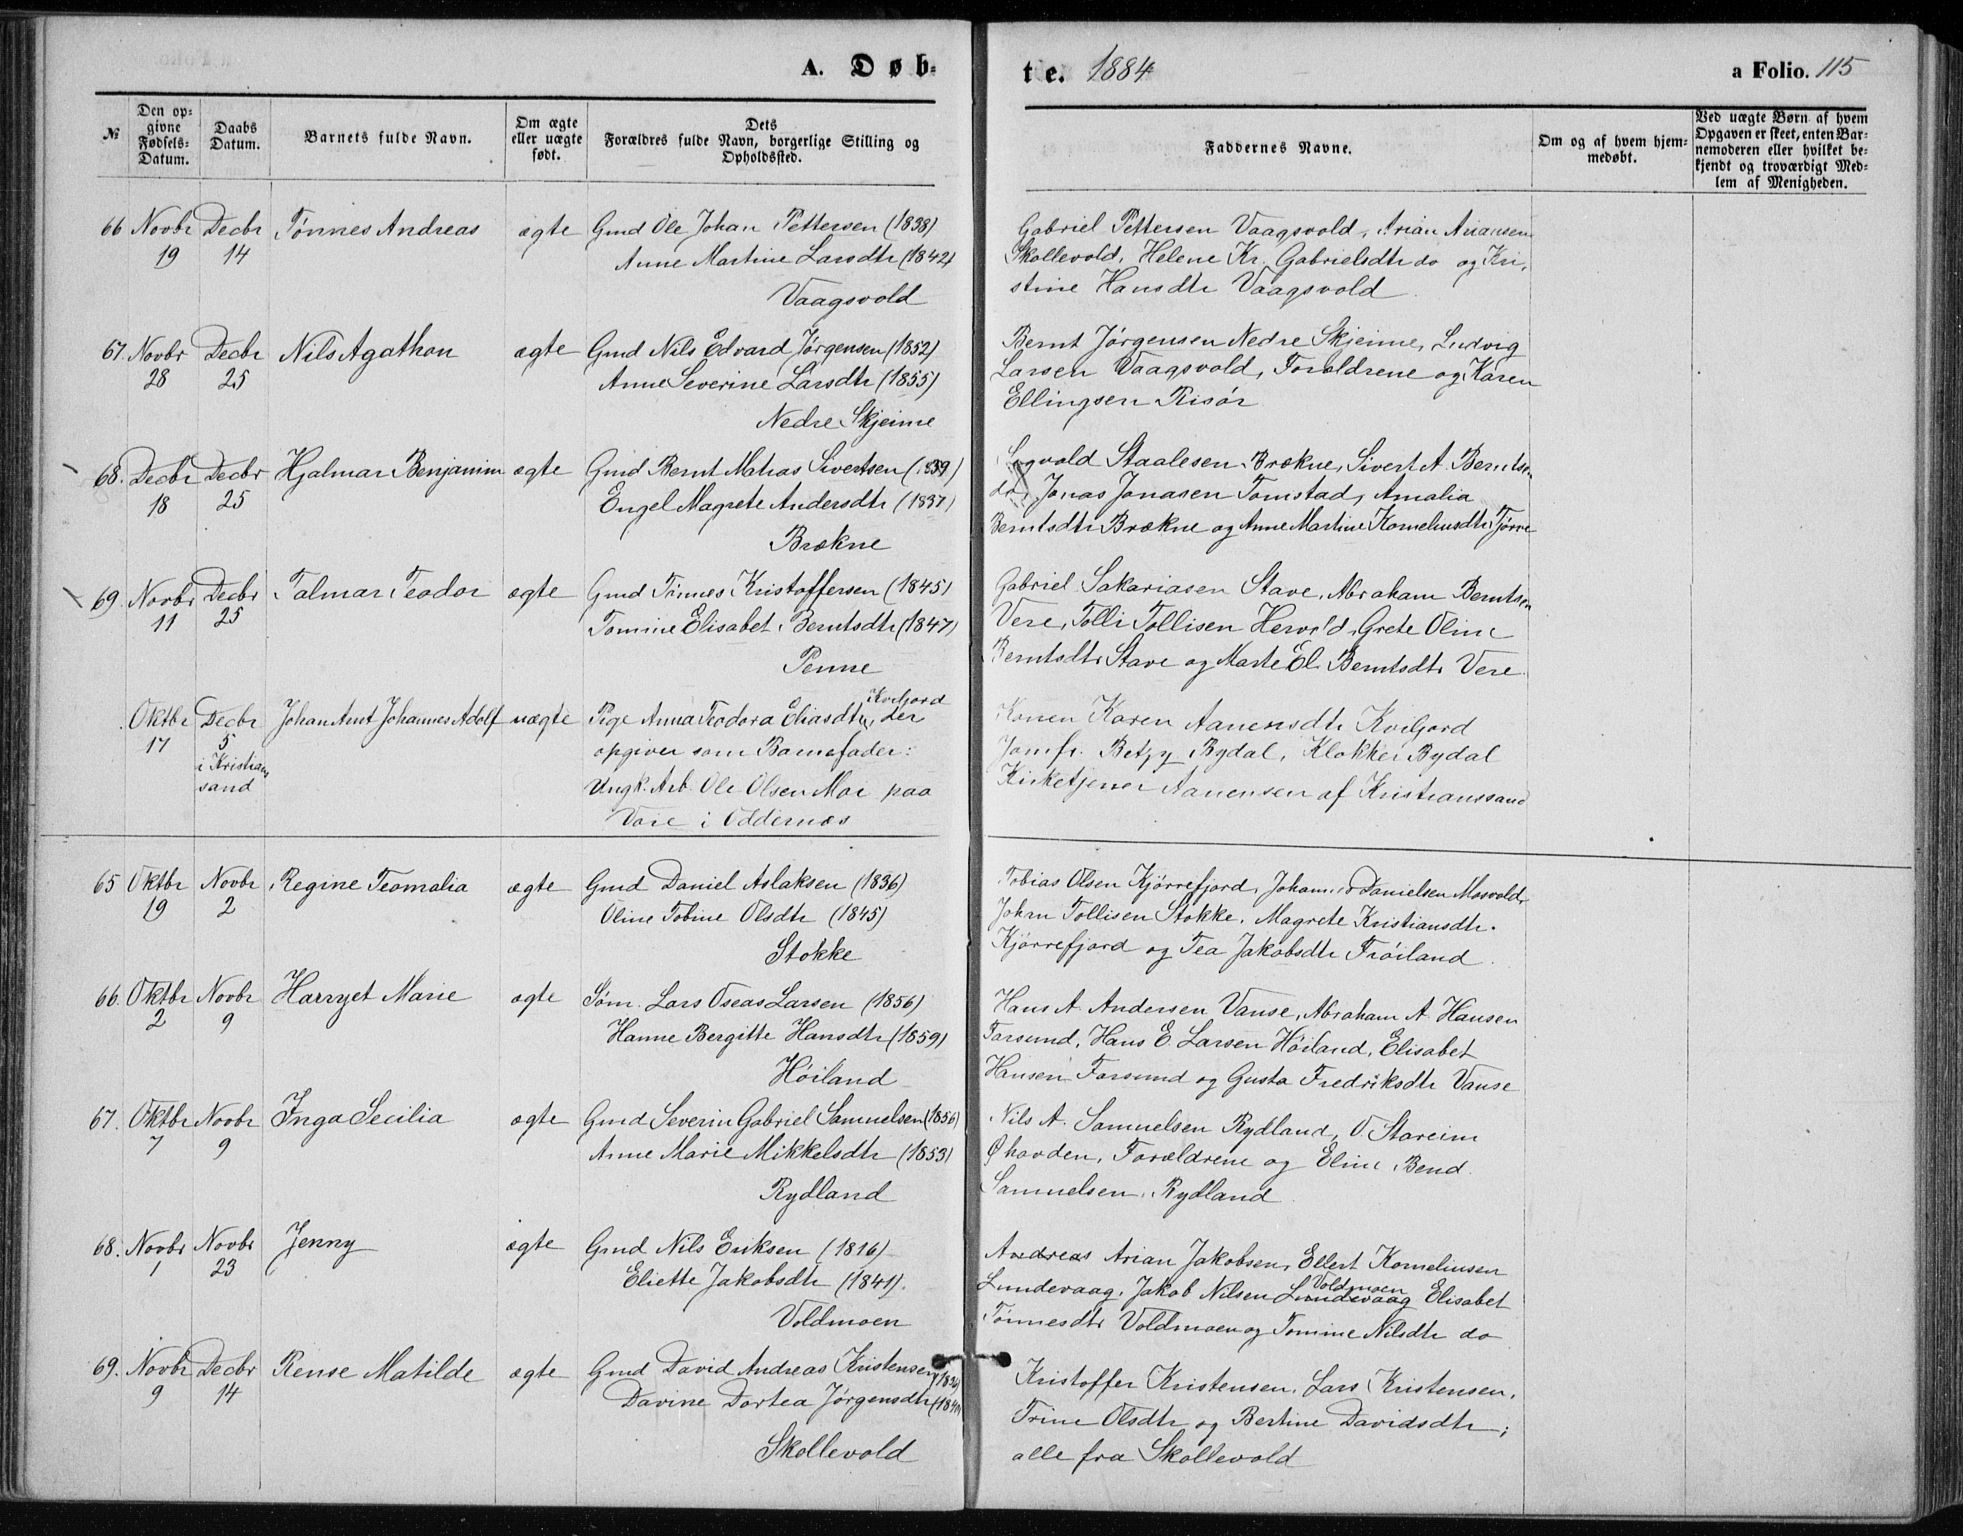 A. Døb-
te. 1884
a Folio. 115
№
Den op-
givne
Fødsels-
Datum.
Daabs
Datum.
Barnets fulde Navn.
Om ægte
eller uægte
født.
Dets
Forældres fulde Navn, borgerlige Stilling og
Opholdssted.
Faddernes Navne.
Om og af hvem hjem-
medøbt.
Ved uægte Børn af hvem
Opgaven er skeet, enten Bar-
nemoderen eller hvilket be-
kjendt og troværdigt Med-
lem af Menigheden.
66 Novbr Decbr Tønnes Andreas ægte Gmd Ole Johan Pettersen (1838)
19 14 Anne Martine Larsdtr (1842)
Vaagsvold
Gabriel Pettersen Vaagsvold, Arian Ariansen
Skollevold, Helene Kr. Gabrielsdtr do og Kri-
stine Hansdtr Vaagsvold
67. Novbr Decbr Nils Agathon ægte Gmd Nils Edvard Jørgensen (1852)
28 25 Anne Severine Larsdtr (1855)
Nedre Skjeime
Bernt Jørgensen Nedre Skjeime, Ludvig
Larsen Vaagsvold, Forældrene og Karen
Ellingsen Risør
68. Decbr Decbr Hjalmar Benjamin ægte Gmd Bernt Matias Sivertsen (1839)
18 25 Engel Magrete Andersdtr (1837)
Brækne
Staalesen Brækne, Sivert A. Berntsen
do, Jonas Jonasen Tomstad, Amalia
Berntsdtr Brækne og Anne Martine Korneliusdtr Tjørve
69. Novbr Decbr Talmar Teodor ægte Gmd Tønnes Kristoffersen (1845)
11 25 Tomine Elisabet Berntsdtr (1847)
Penne
Gabriel Sakariasen Stave, Abraham Berntsen
Vere, Tolli Tollisen Hervold, Grete Oline
Berntsdtr Stave og Marte El. Berntsdtr Vere
Oktbr Decbr Johan Arnt Johannes Adolf uægte Pige Anna Teodora Eliasdtr, Kviljord der
17 5 opgiver som Barnefader:
i Kristian
sand Ungk. Arb. Ole Olsen Moi paa
i Oddernæs
Konen Karen Aanensdtr Kviljord
Jomfr. Betzy Rydal, Klokker Rydal
Kirketjener Aanensen af Kristianssand
65 Oktbr Novbr Regine Teomalia ægte Gmd Daniel Aslaksen (1836)
19 2 Oline Tobine Olsdtr (1845)
Stokke
Tobias Olsen Kjørrefjord, Johannes Danielsen Mosvold,
Johan Tollisen Stokke, Magrete Kristiansdtr
Kjørrefjord og Tea Jakobsdtr Frøiland
66. Oktbr Novbr Harryet Marie ægte Søm. Lars Oseas Larsen (1856)
2 9 Hanne Bergitte Hansdtr (1859)
Høiland
Hans A. Andersen Vanse, Abraham A. Hansen
Farsund, Hans E. Larsen Høiland, Elisabet
Hansen Farsund og Gusta Fredriksdtr Vanse
67. Oktbr Novbr Inga Secilia ægte Gmd Severin Gabriel Samuelsen (1856)
7 9 Anne Marie Mikkelsdtr (1853)
Rydland
Nils A. Samuelsen Rydland, O. Stareim
Øhavden, Forældrene og Eline Bend.
Samuelsen Rydland
68. Novbr Novbr Jenny ægte Gmd Nils Eriksen (1816)
1 23 Eliette Jakobsdtr (1841).
Voldmoen
Andreas Arian Jakobsen, Ellert Korneliusen
Lundevaag, Jakob Nilsen Lundevaag Voldmoen Elisabet
Tønnesdtr Voldmoen og Tomine Nilsdtr do
69. Novbr Decbr Rense Matilde ægte Gmd David Andreas Kristensen
9 14 Davine Dortea Jørgensdtr
Skollevold
Kristoffer Kristensen, Lars Kristensen,
Trine Olsdtr og Bertine Davidsdtr,
alle fra Skollevold